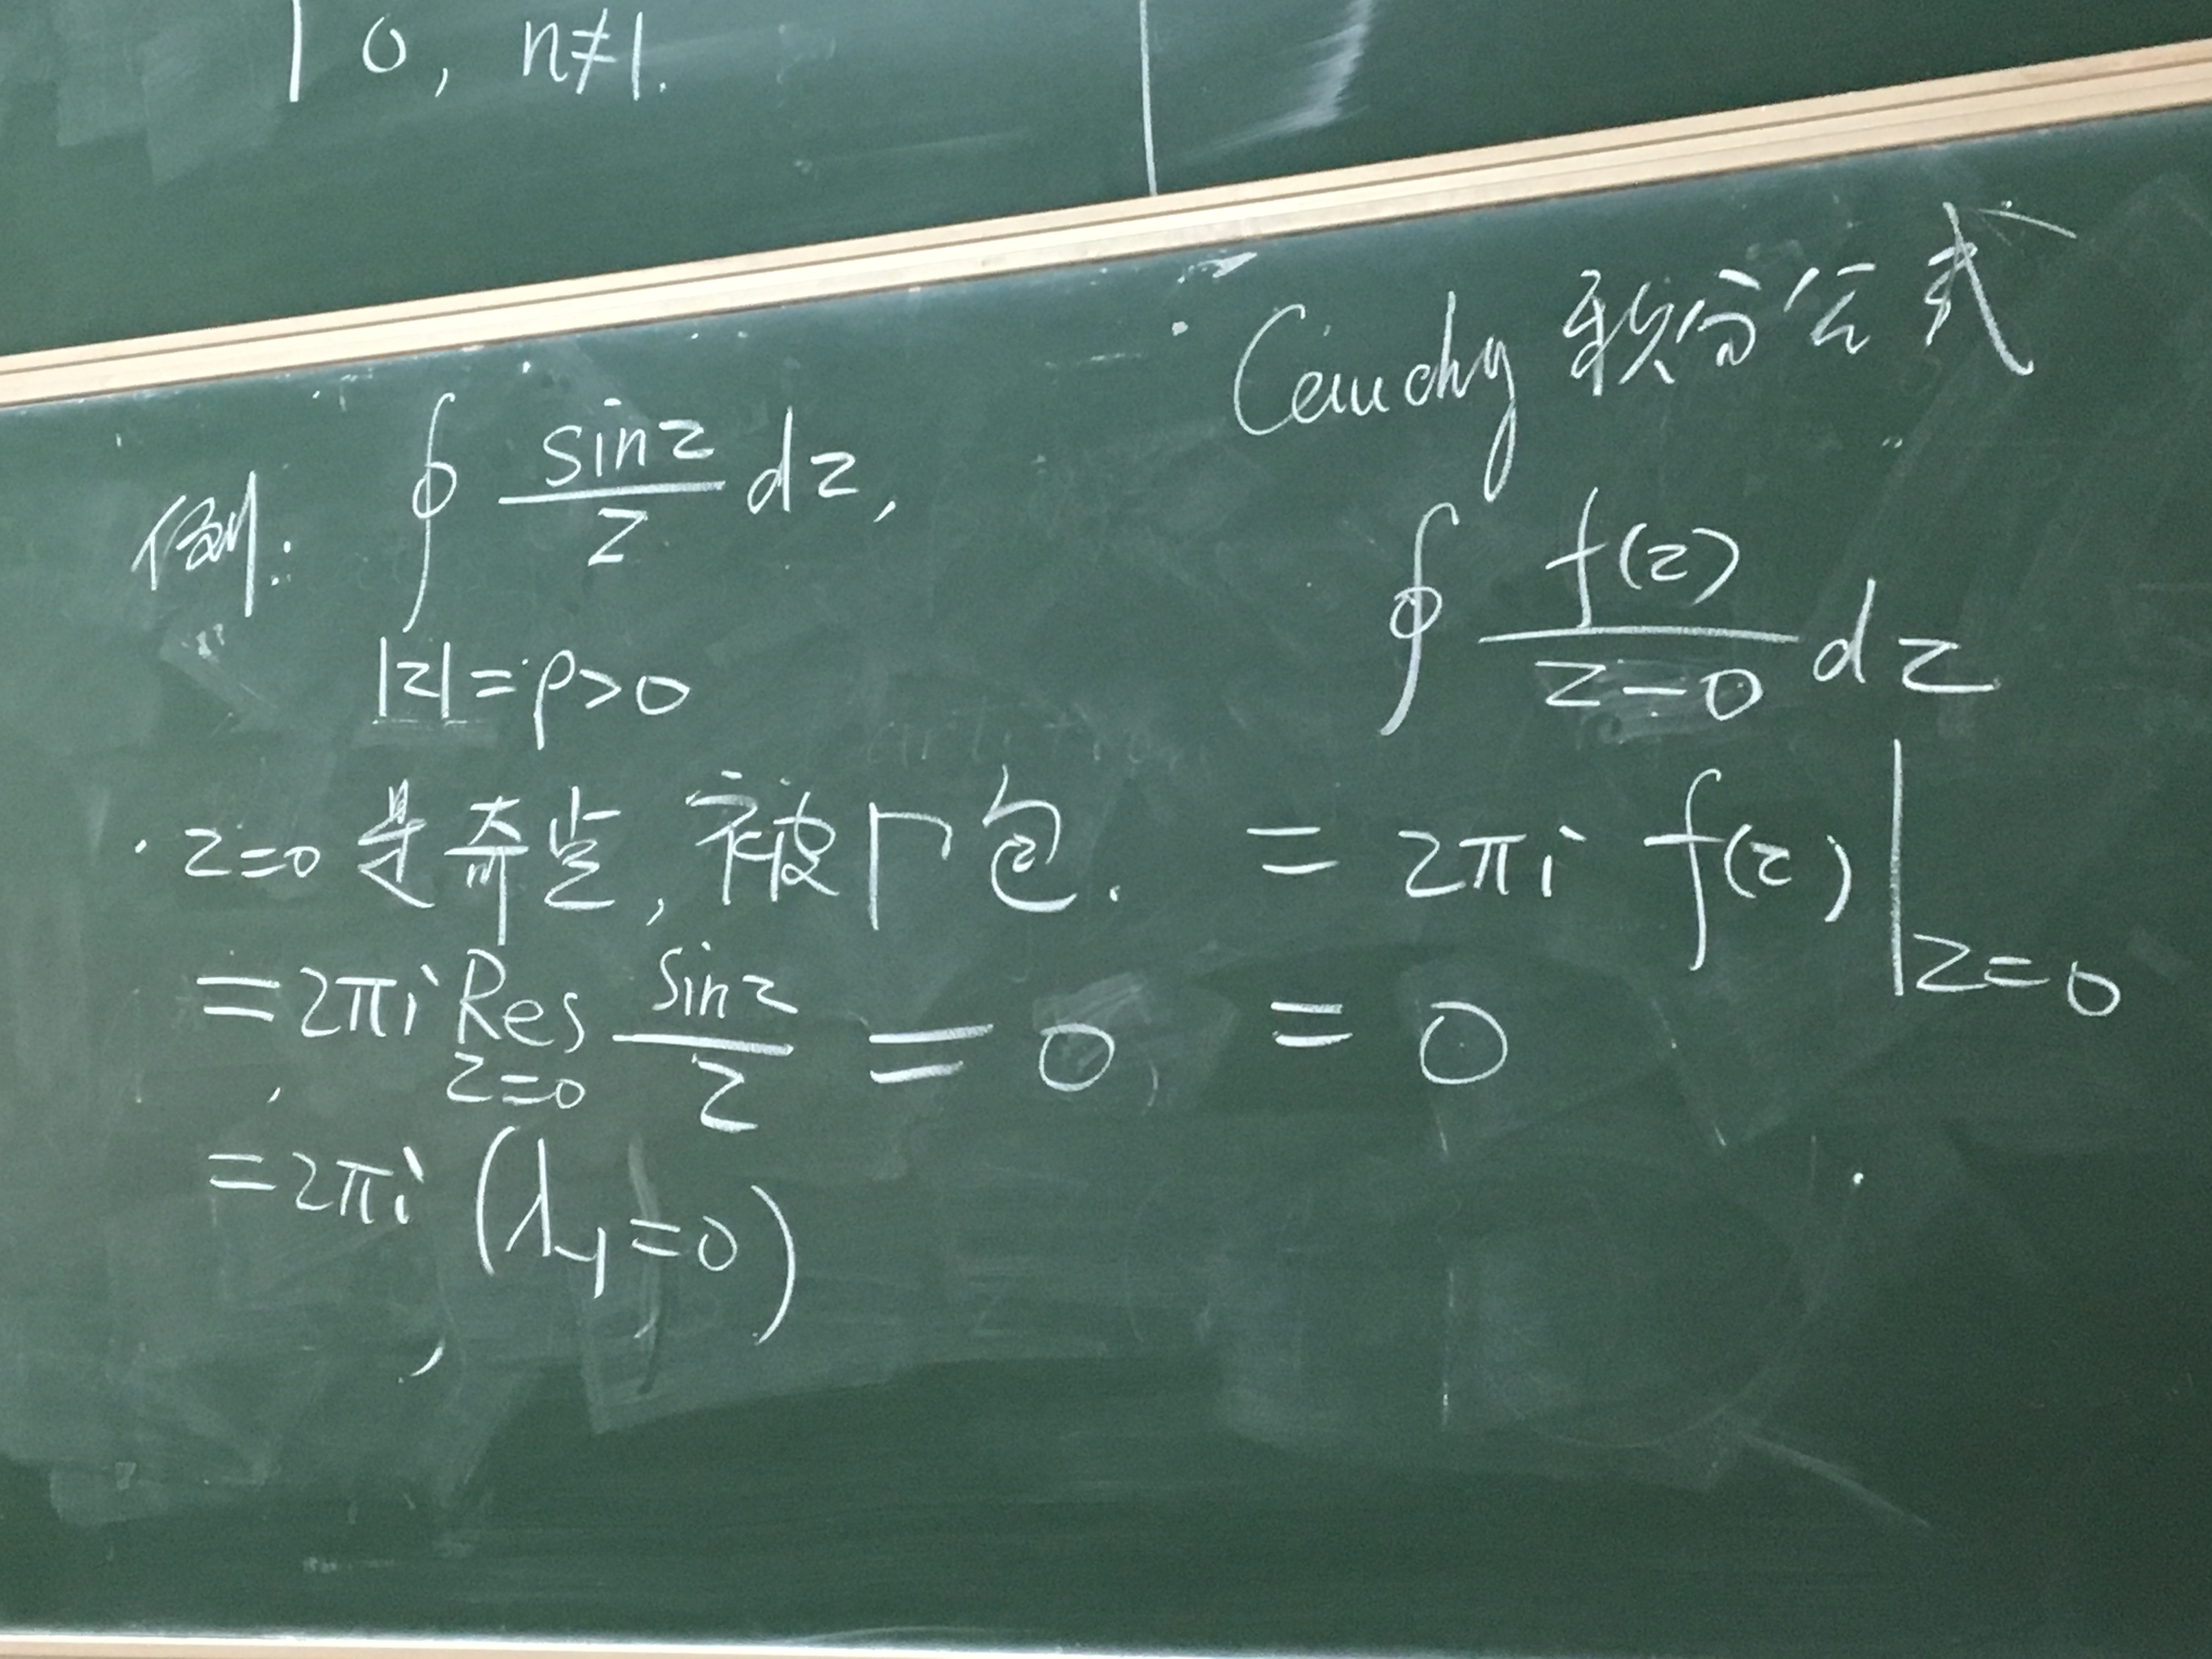 0, n≠1.
例: ∮ sinz/z dz,
|z|=ρ>0
z=0是奇点, 被Γ包.
=2πi Res sinz/z = 0
z=0
=2πi (λ₋₁=0)
Cauchy 积分公式
∮ f(z)/z-0 dz
= 2πi f(z)|z=0
= 0